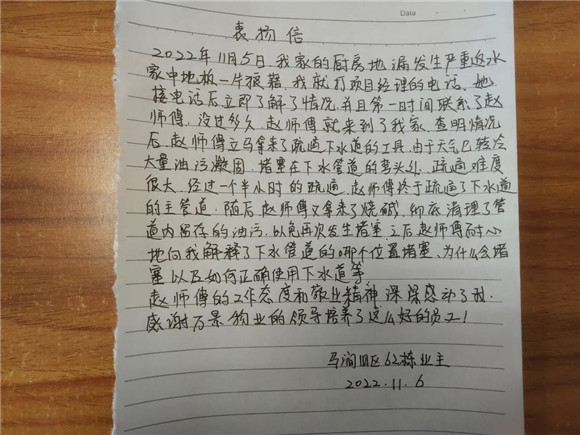 Date
表扬信
2022年11月5日,我家的厨房地漏发生严重返水
家中地板一片狼藉,我就打项目经理的电话,她
接电话后立即了解了情况,并且第一时间联系了赵
师傅,没过多久,赵师傅就来到了我家,查明情况
后,赵师傅立马拿来了疏通下水道的工具,由于天气已转冷
大量油污凝固,堵塞在下水管道的弯头处,疏通难度
很大,经过一个半小时的疏通,赵师傅终于疏通了下水道
的主管道.随后赵师傅又拿来了烧碱,彻底清理了管
道内留存的油污,以免再次发生堵塞,之后赵师傅耐心
地向我解释了下水管道的哪个位置堵塞、为什么会堵
塞以及如何正确使用下水道等
赵师傅的工作态度和敬业精神深深感动了我.
感谢万景物业的领导培养了这么好的员工!
马涧四区62栋业主
2022.11.6